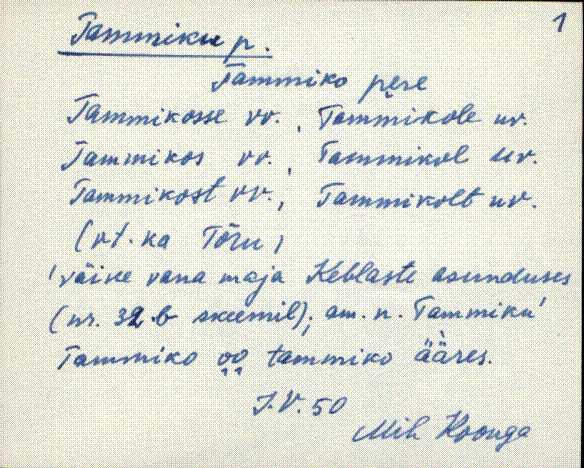 1
Tammiku p.
Tammiko pere
Tammikosse vv., Tammikole uv.
Tammikos vv., Tammikol uv.
Tammikost vv., Tammikolt uv.
(vt. ka Tõru)
'väike vana maja Keblaste asunduses
(nr. 32.b skeemil); am. n. Tammiku'
Tammiko oo tammiko ääres.
J.V. 50
Mih Koonga